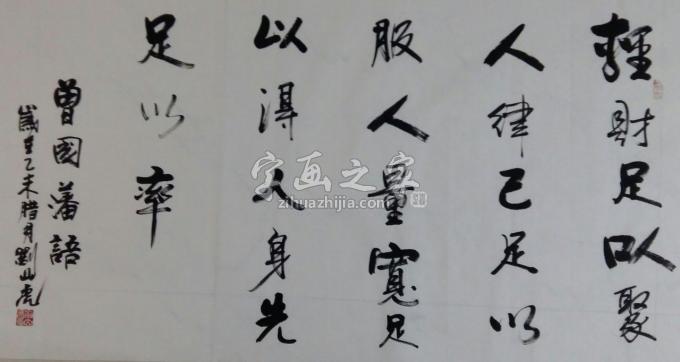 輕財足以聚
人律己足以
服人量寬足
以得人身先
足以率
曾國藩語
歲在乙未腊月劉山虎
字画之家
zihuazhijia.com